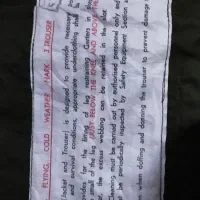 FLYING, COLD WEATHER MARK 3 TROUSER
Jacket and Trouser) is designed to provide necessary
and survival conditions, appropriate underclothing
for the fitting of leg restraining Garters in
small of the leg (JUST BELOW THE KNEE AND ABOVE
the excess webbing can be retained in the
must be carried out by authorised personnel only
be periodically inspected by Safety Equipment Section
when doffing and donning the trouser to prevent damage